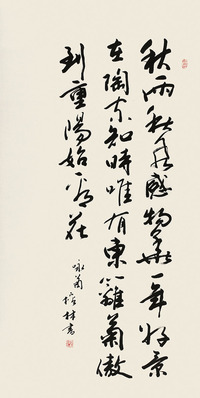 秋雨秋風感物華一年好景
在陶家知時唯有東籬菊傲
到重陽始花
詠菊 林書